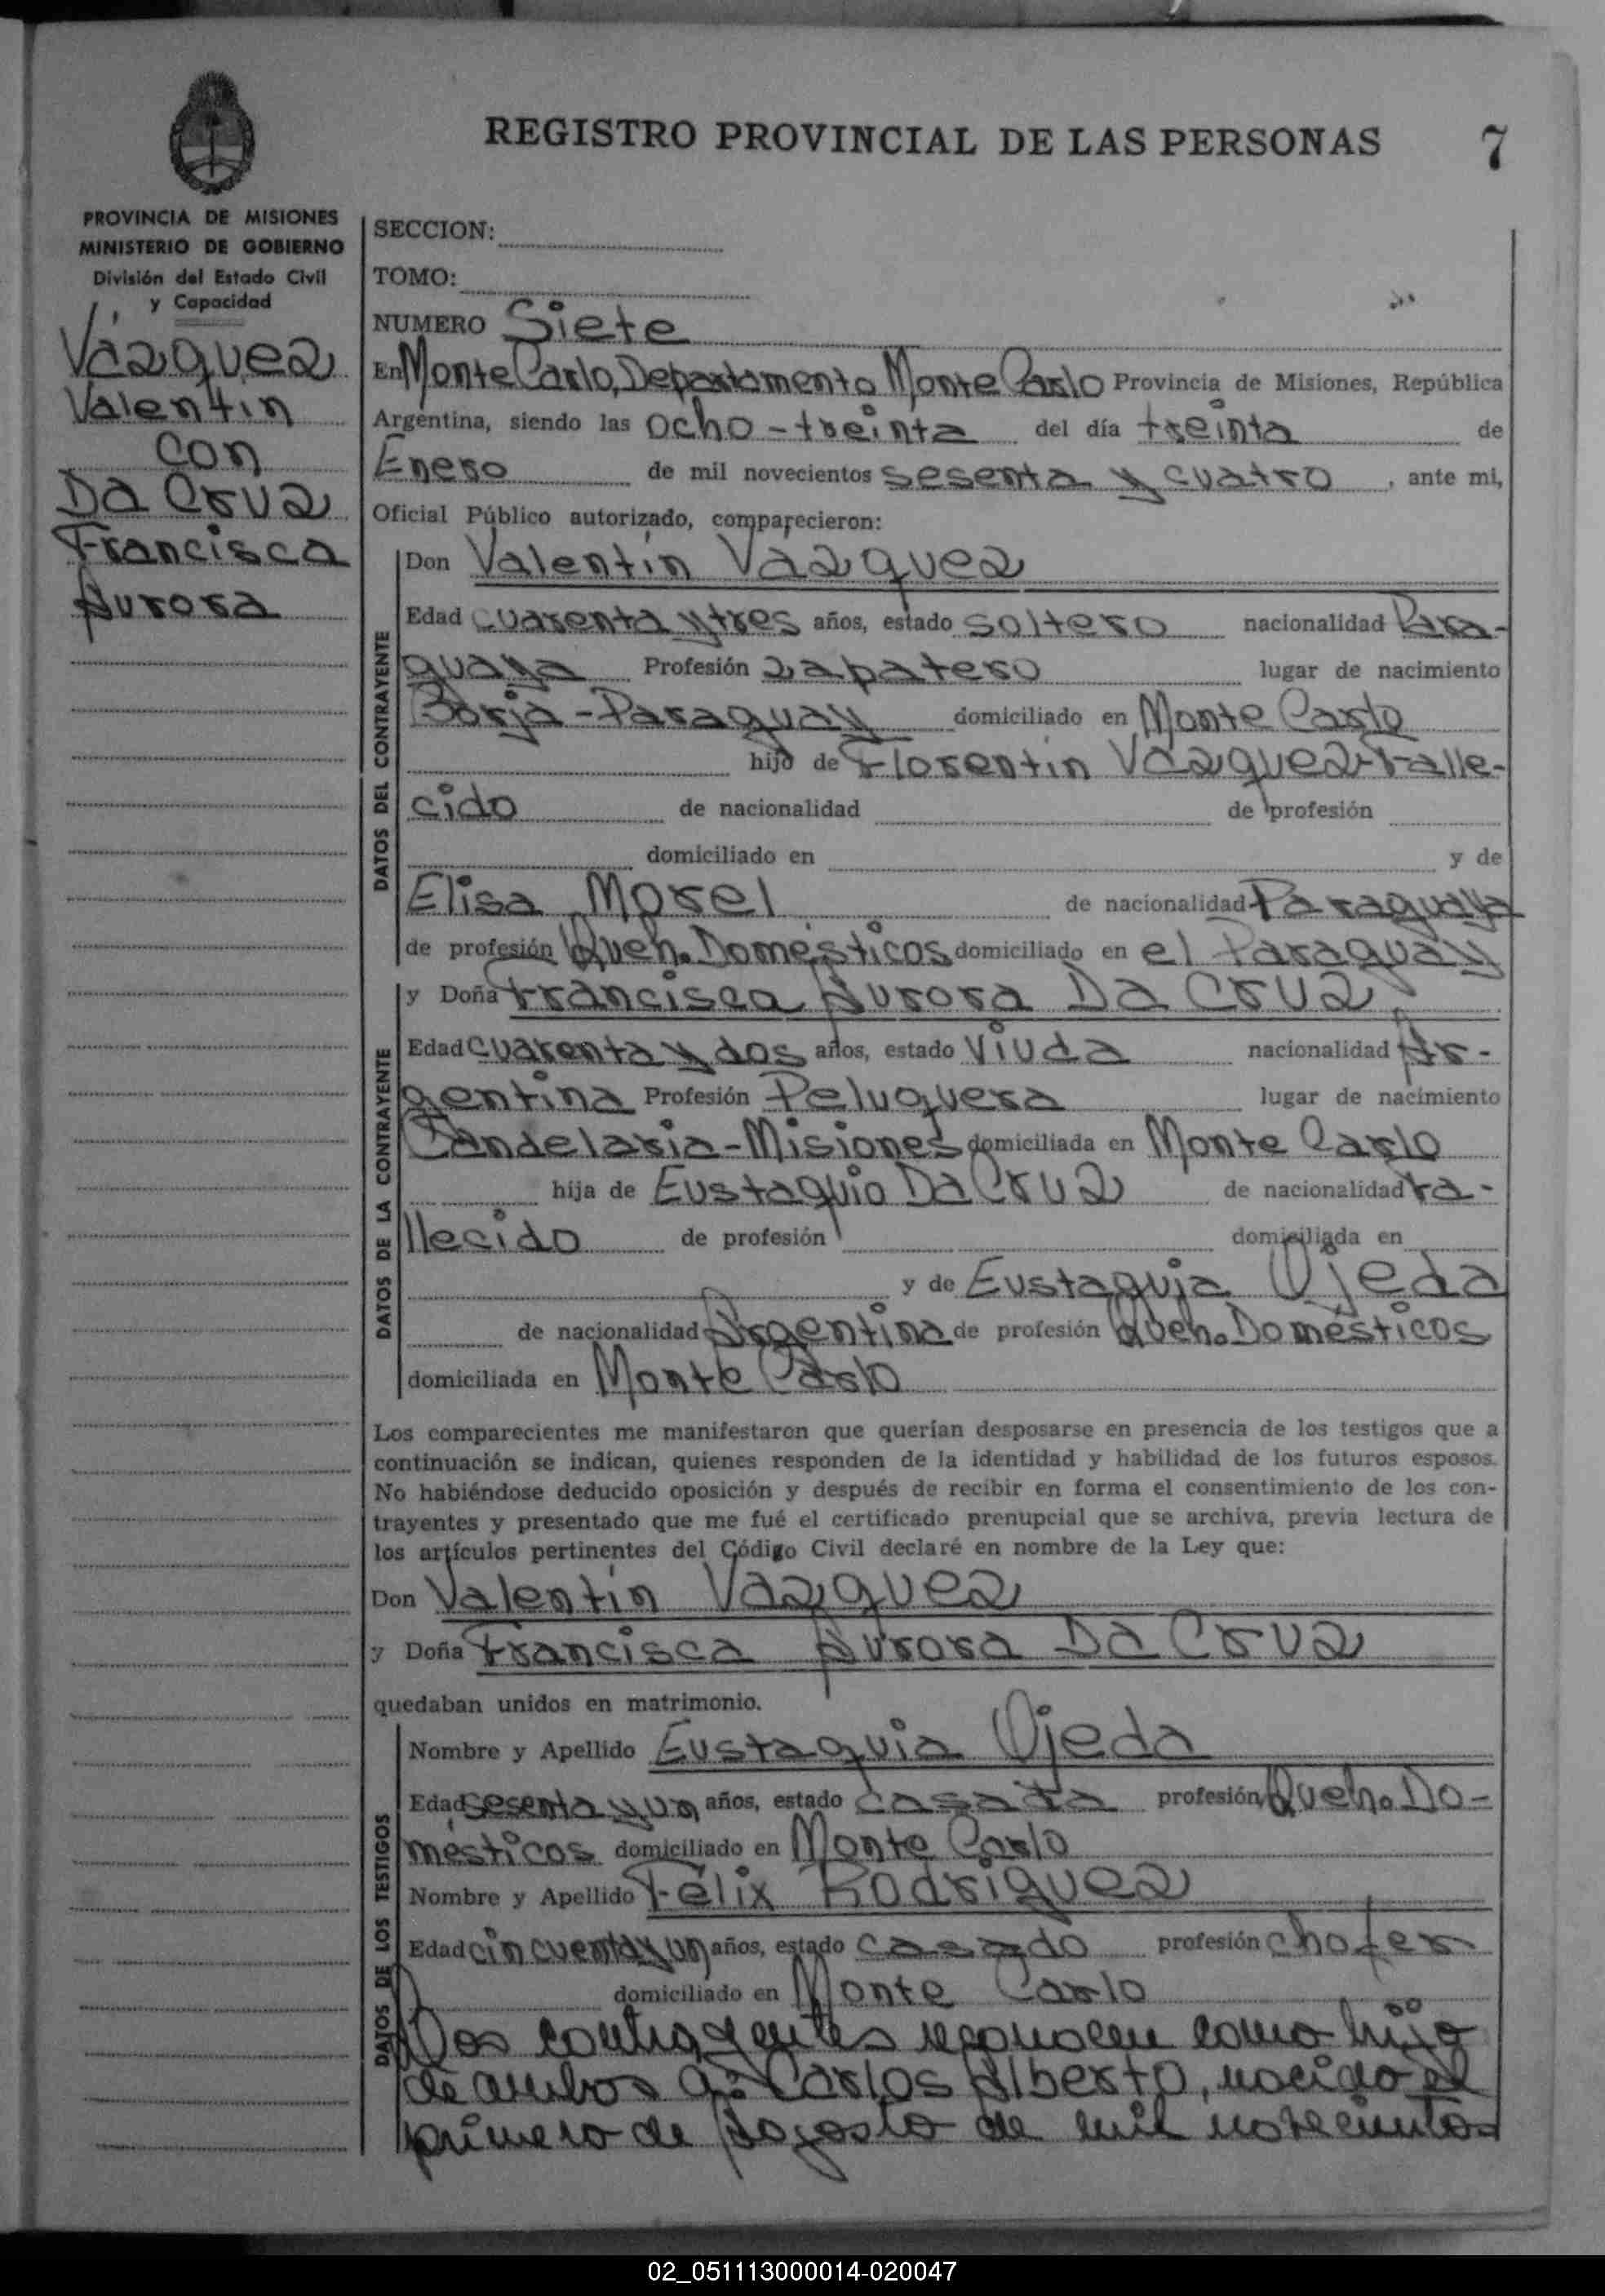 REGISTRO PROVINCIAL DE LAS PERSONAS 7
PROVINCIA DE MISIONES
MINISTERIO DE GOBIERNO
División del Estado Civil
y Capacidad
Vázquez
Valentín
con
Da Cruz
Francisca
Aurora
SECCION:
TOMO:
NUMERO Siete
En Monte Carlo, Departamento Monte Carlo Provincia de Misiones, República
Argentina, siendo las ocho-treinta del día treinta de
Enero de mil novecientos sesenta y cuatro, ante mi,
Oficial Público autorizado, comparecieron:
DATOS DEL CONTRAYENTE
Don Valentín Vazquez
Edad cuarenta y tres años, estado soltero nacionalidad Para-
guaya Profesión zapatero lugar de nacimiento
Borja-Paraguay domiciliado en Monte Carlo
hijo de Florentín Vázquez-Falle-
cido de nacionalidad de profesión
domiciliado en y de
Elisa Morel de nacionalidad Paraguaya
de profesión Queh. Domésticos domiciliado en el Paraguay
DATOS DE LA CONTRAYENTE
y Doña Francisca Aurora Da Cruz
Edad cuarenta y dos años, estado Viuda nacionalidad Ar-
gentina Profesión Peluquera lugar de nacimiento
Candelaria-Misiones domiciliada en Monte Carlo
hija de Eustaquio Da Cruz de nacionalidad Fa-
llecido de profesión domiciliada en
y de Eustaquia Ojeda
de nacionalidad Argentina de profesión Queh. Domésticos
domiciliada en Monte Carlo
Los comparecientes me manifestaron que querían desposarse en presencia de los testigos que a
continuación se indican, quienes responden de la identidad y habilidad de los futuros esposos.
No habiéndose deducido oposición y después de recibir en forma el consentimiento de los con-
trayentes y presentado que me fué el certificado prenupcial que se archiva, previa lectura de
los artículos pertinentes del Código Civil declaré en nombre de la Ley que:
Don Valentín Vazquez
y Doña Francisca Aurora Da Cruz
quedaban unidos en matrimonio.
DATOS DE LOS TESTIGOS
Nombre y Apellido Eustaquia Ojeda
Edad sesenta y un años, estado casada profesión Queh. Do-
mésticos domiciliado en Monte Carlo
Nombre y Apellido Félix Rodriguez
Edad cincuenta y un años, estado casado profesión chofer
domiciliado en Monte Carlo
Los contrayentes reconocen como hijo
de ambos a: Carlos Alberto, nacido el
primero de Agosto de mil novecientos
02_051113000014-020047